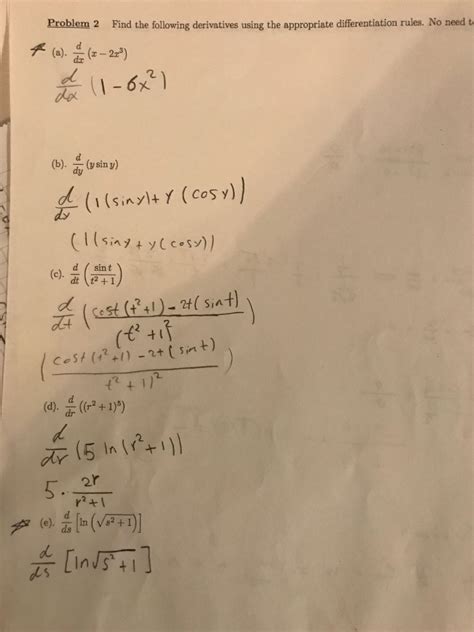 Problem 2 Find the following derivatives using the appropriate differentiation rules. No need
(a). d/dx (x − 2x³)
d/dx (1 − 6x²)
(b). d/dy (y sin y)
d/dy (1(siny) + y (cosy))
(1(siny + y(cosy))
(c). d/dt (sin t / t² + 1)
d/dt (cost (t²+1) − 2t(sint) / (t² + 1)²)
(cost (t²+1) − 2t(sint) / t² + 1)²)
(d). d/dr ((r² + 1)⁵)
d/dr (5 ln (r²+1))
5 · 2r / r²+1
(e). d/ds [ln (√s² + 1)]
d/ds [ln√s²+1]